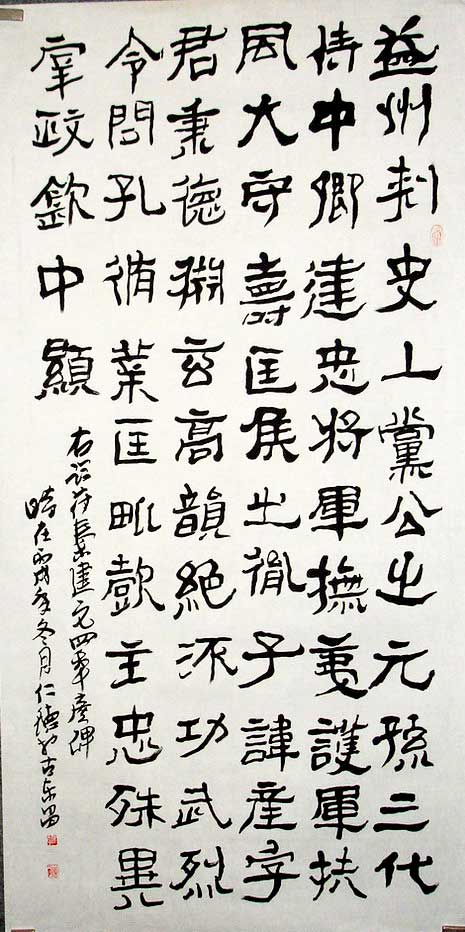 益州刾史上黨公之元孫三代
侍中卿建忠將軍撫夷護軍扶
風大守壽匡侯之胤子諱産字
君秉德淵玄高韻絕流功武烈
令問孔循葉匡毗懿主忠殊異
宰政欽中顯
右临苻秦建元四年產碑
時在丙戌年冬月仁德於古东昌